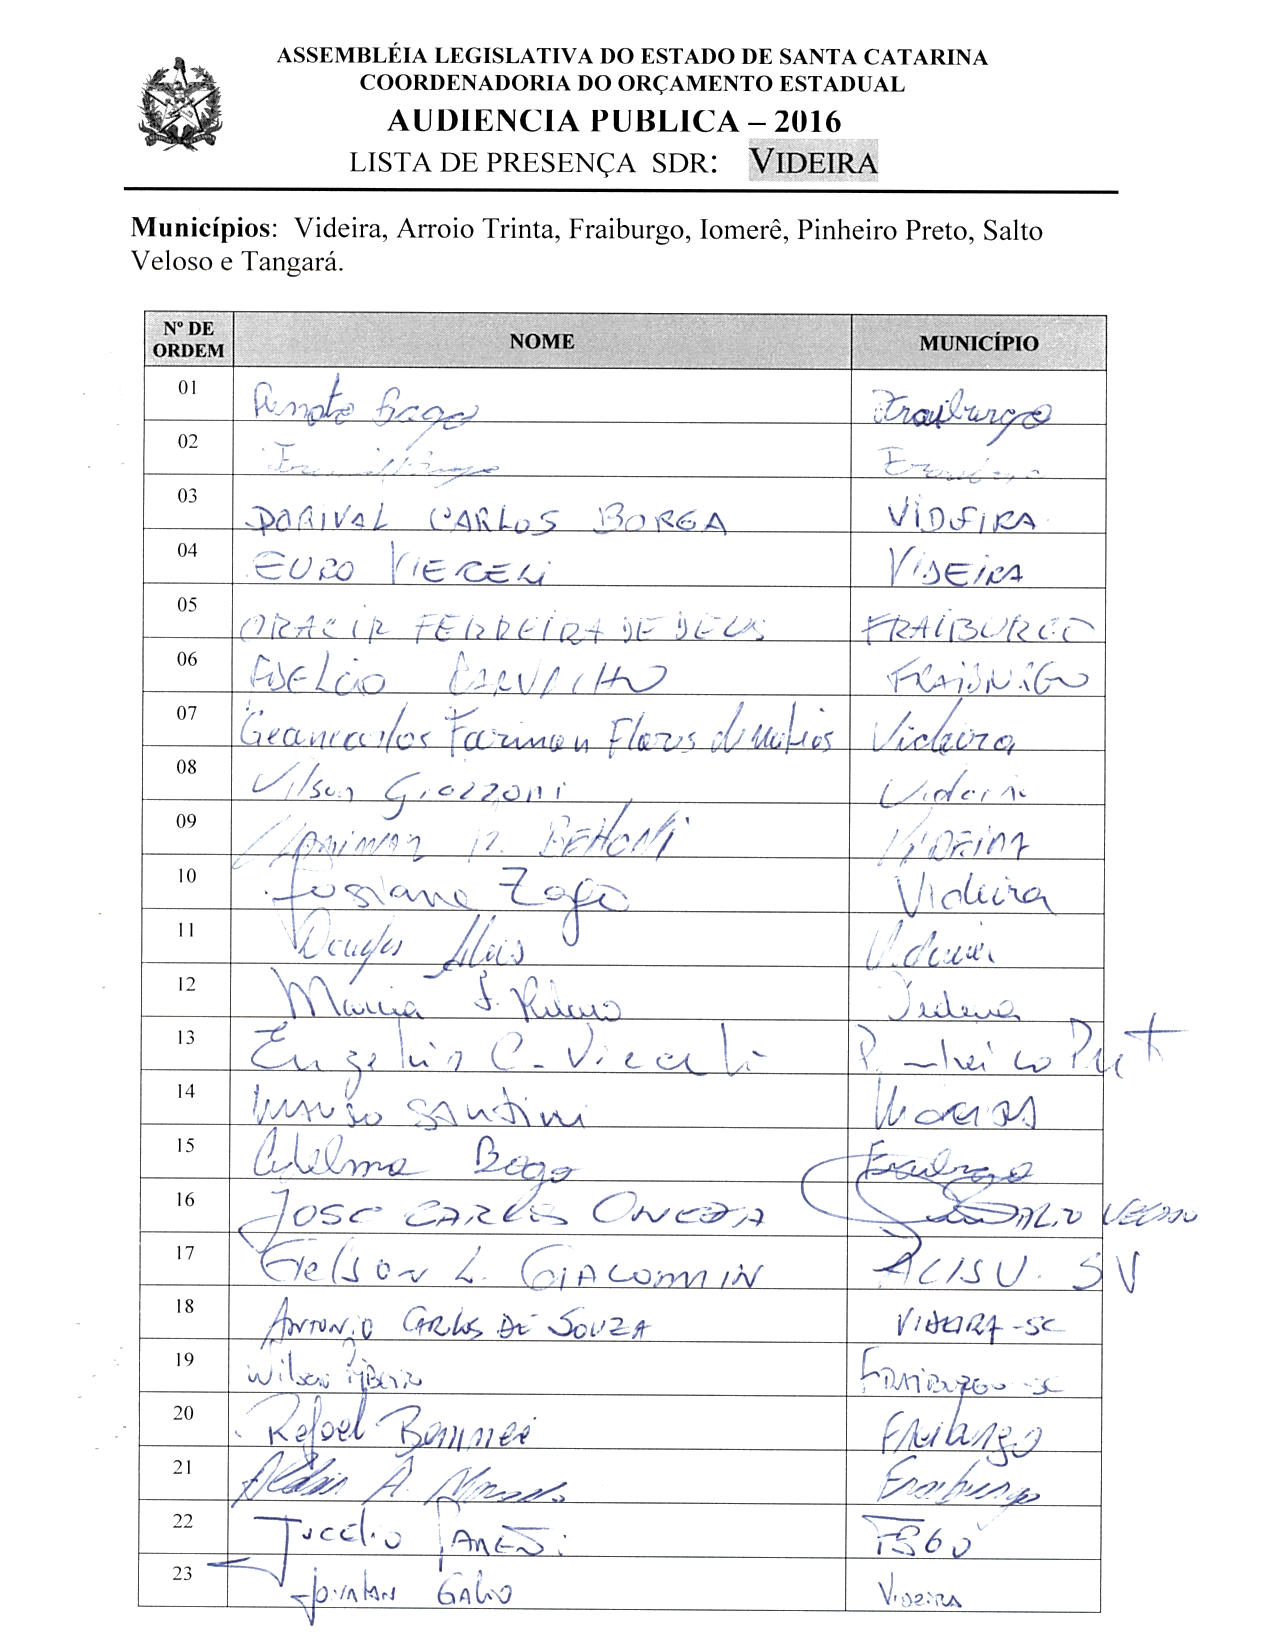 ASSEMBLÉIA LEGISLATIVA DO ESTADO DE SANTA CATARINA
COORDENADORIA DO ORÇAMENTO ESTADUAL
AUDIENCIA PUBLICA – 2016
LISTA DE PRESENÇA SDR: VIDEIRA
Municípios: Videira, Arroio Trinta, Fraiburgo, Iomerê, Pinheiro Preto, Salto
Veloso e Tangará.
Nº DE ORDEM NOME MUNICÍPIO
01 Fraiburgo
02
03 DORIVAL CARLOS BORGA VIDEIRA
04 EURO VIECELI VIDEIRA
05 ORACIR FERREIRA DE DEUS FRAIBURGO
06 CARVALHO FRAIBURGO
07 Geancarlos Farinon Flores de Matios Videira
08 Vilson Giazzoni Videira
09 BETTONI VIDEIRA
10 Josiane Videira
11 Douglas Videira
12 Marcia Videira
13 C. Vieceli Pinheiro Preto
14 SANTINI
15 Edelma Bogo Fraiburgo
16 JOSE CARLOS ONEDA SALTO VELOSO
17 Gelson L. GIACOMIN ACISV. SV
18 ANTONIO CARLOS DE SOUZA VIDEIRA-SC
19 Wilson RIBEIRO FRAIBURGO-SC
20 Rafael Fraiburgo
21 A. Fraiburgo
22 Jucélio FBGO
23 JONATAN VIDEIRA